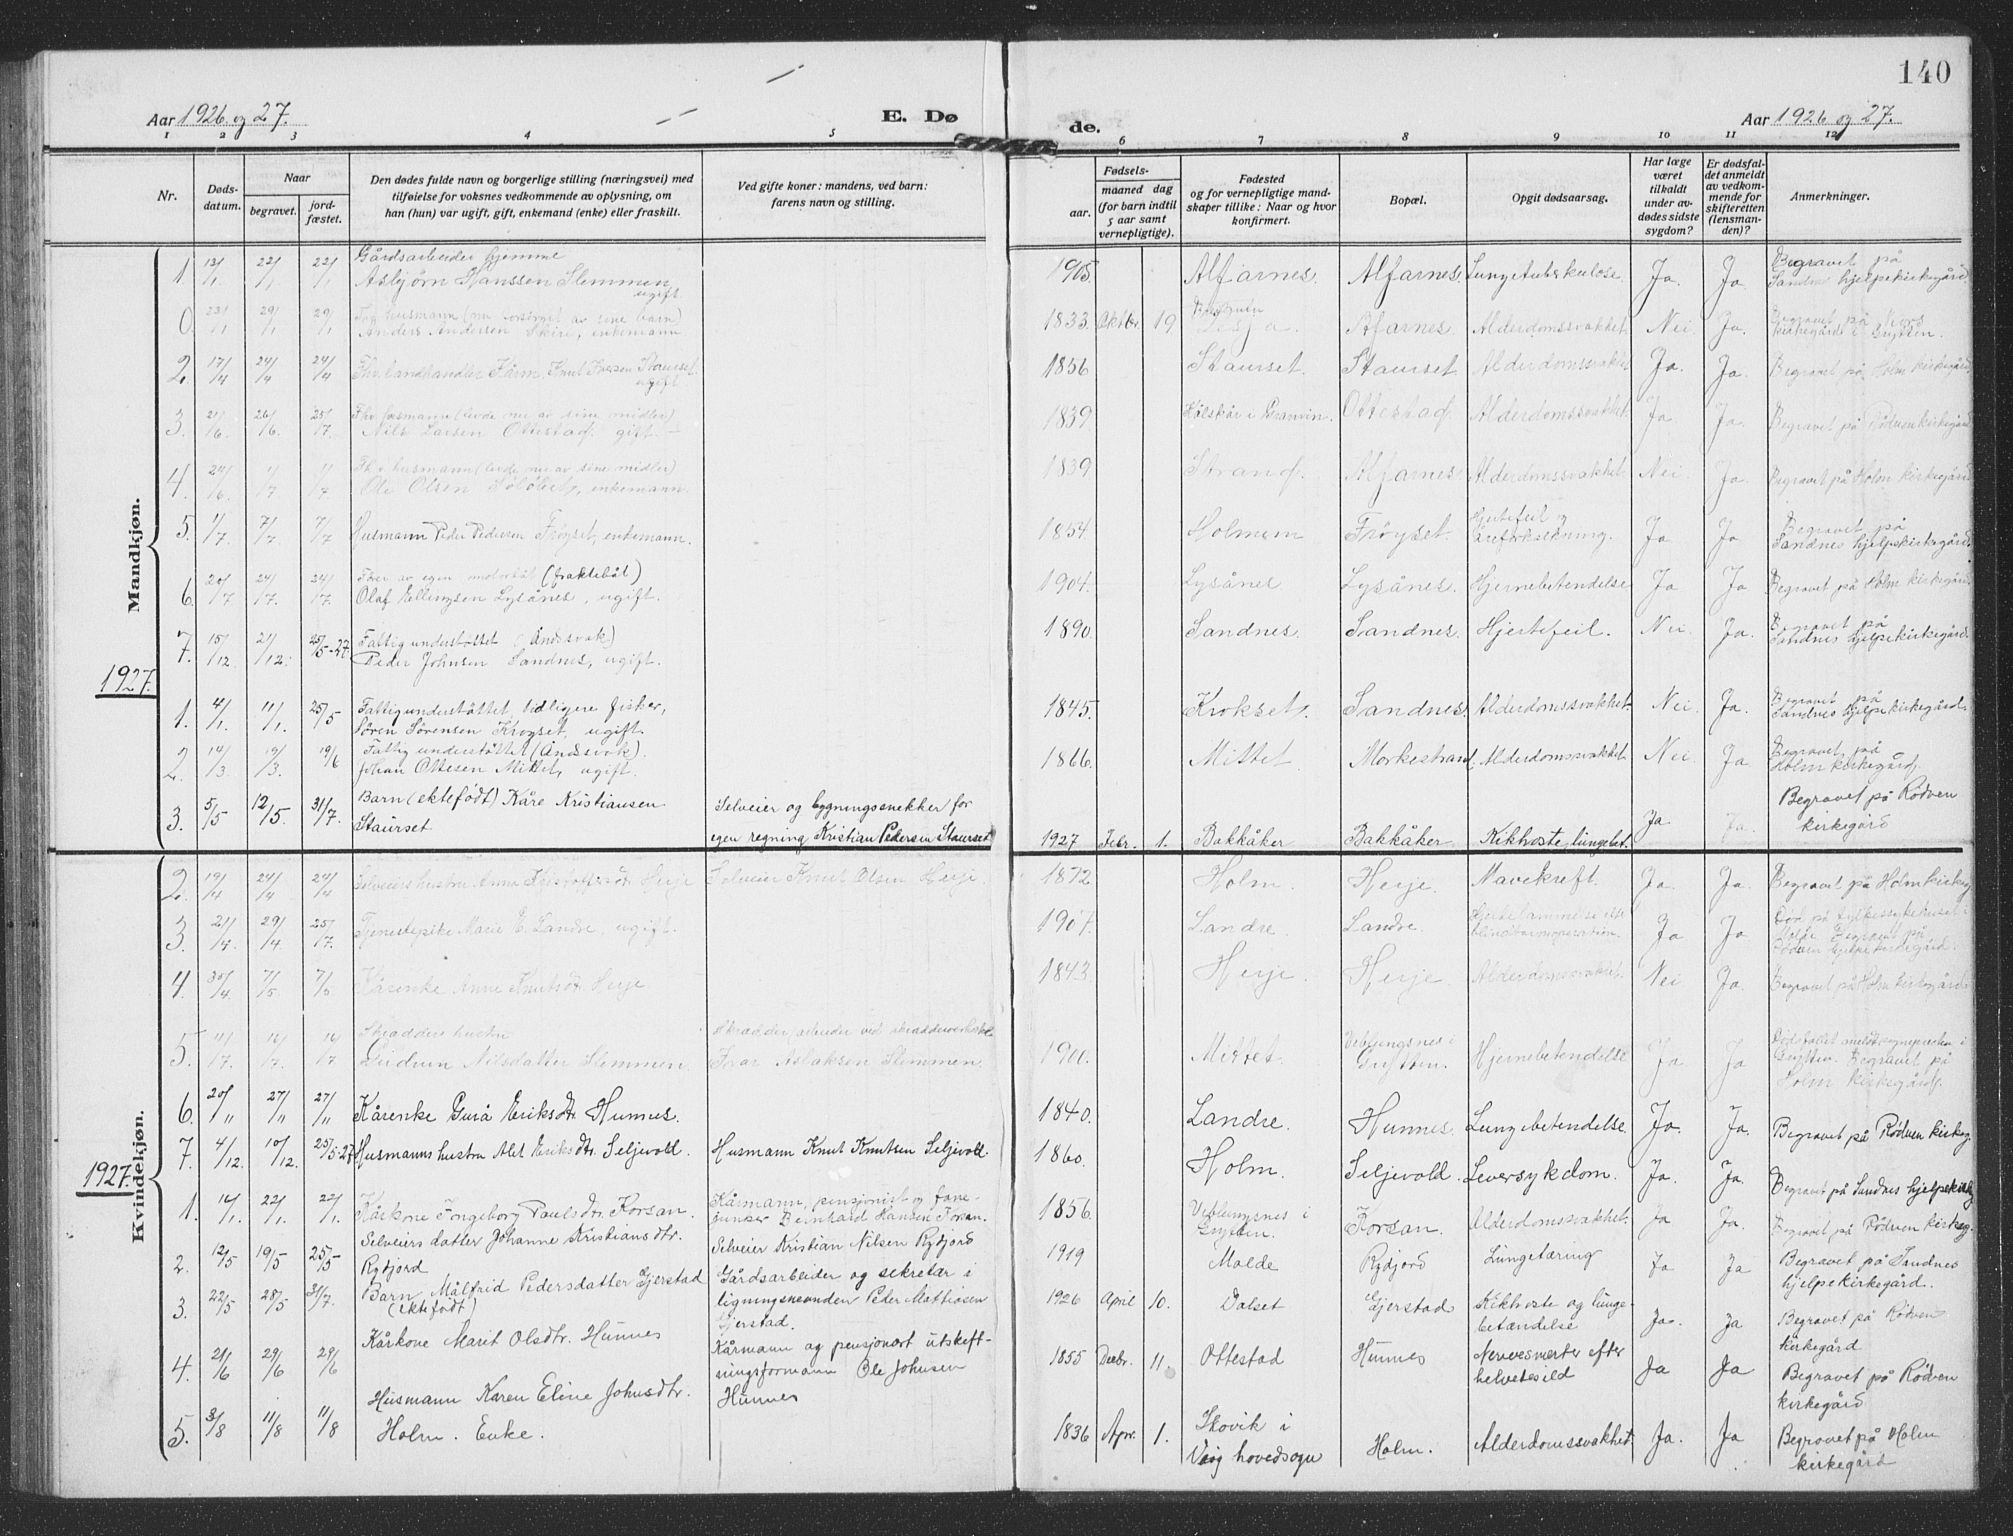 140
Aar 1926 og 27.
E. Dø
de.
Aar 1926 og 27.
1 2 3 4 5 6 7 8 9 10 11 12
Nr.
Dødsdatum.
Naar
begravet.
jordfæstet.
Den dødes fulde navn og borgerlige stilling (næringsvei) med
tilføielse for voksnes vedkommende av oplysning, om
han (hun) var ugift, gift, enkemand (enke) eller fraskilt.
Ved gifte koner: mandens, ved barn:
farens navn og stilling.
Fødsels-
aar.
maaned dag
(for barn indtil
5 aar samt
vernepligtige).
Fødested
og for vernepligtige mand-
skaper tillike: Naar og hvor
konfirmert.
Bopæl.
Opgit dødsaarsag.
Har læge
været
tilkaldt
under av-
dødes sidste
sygdom?
Er dødsfal-
det anmeldt
av vedkom-
mende for
skifteretten
(lensman-
den)?
Anmerkninger.
Mandkjøn.
Gårdsarbeider hjemme
1 13/1 22/1 22/1 Asbjørn Hanssen Slemmen, ugift 1905 Alfarnes Alfarnes Lungetuberkulose Ja. Ja. Begravet på
Sandnes hjelpekirkegård
0 23/1 29/1 29/1 Fhv. husmann (nu forsørget av sine barn)
Anders Andersen Skiri, enkemann 1833 Oktbr. 19 Lesja Alfarnes Alderdomssvakhet Nei Ja.
2. 17/4 24/4 24/4 Fhv. landhandler Knut Iversen Staurset ugift 1856 Staurset. Staurset Alderdomssvakhet Ja. Ja. Begravet på Holm kirkegård
3. 21/6 26/6 25/7 Nils Larsen Ottestad, gift. 1839 Ottestad. Alderdomssvakhet. Ja Ja. Begravet på Rødven kirkegård
4. 24/6 1/7 1/7 Fhv. husmann (levde nu av sine midler)
Ole Olsen, enkemann. 1839 Strand. Alfarnes Alderdomssvakhet Nei Ja. Begravet på Holm kirkegård
5. 1/7 7/7 7/7 Husmann Peder Pedersen Frøyset, enkemann. 1854 Holmem Frøyset. Hjertefeil og
åreforkalkning. Ja Ja Begravet på
Sandnes hjelpekirkegård.
6. 20/7 24/7 24/7 Fører av egen motorbåt (fraktebåt)
Olaf Ellingsen Lysånes, ugift. 1904. Lysånes Lysånes. Hjernebetendelse Ja Ja Begravet på Holm kirkegård
7. 15/12 21/12. 25/5-27 Fattigunderstøttet (Åndssvak)
Peder Johnsen Sandnes, ugift. 1890 Sandnes Sandnes Hjertefeil. Nei Ja. Begravet på
Sandnes hjelpekirkegård.
1927.
1. 4/1 11/1. 25/5 Fattigunderstøttet, tidligere fisker,
Søren Sørensen Krogset, ugift. 1845. Krokset. Sandnes. Alderdomssvakhet. Nei. Ja. Begravet på
Sandnes hjelpekirkegård.
2. 14/3 19/3. 19/6 Fattigunderstøttet (Åndssvak).
Johan Ottesen Mittet, ugift. 1866 Mittet Morkestrand, Alderdomssvakhet Nei. Ja Begravet på
Holm kirkegård.
3. 5/5 12/5. 31/7. Barn (ektefødt) Kåre Kristiansen
Staurset Selveier og bygningssnekker for
egen regning Kristian Pedersen Staurset 1927 Febr. 1. Bakkåker Bakkåker Kikhoste, lungebet. Ja Ja. Begravet på Rødven
kirkegård
Kvindekjøn.
2. 19/4 24/4 24/4 Selveiers hustru Anne Kristoffersdtr. Herje Selveier Knut Olsen Herje. 1872 Holm. Herje. Mavekreft. Ja. Ja. Begravet på Holm kirkeg.
3. 21/4. 29/4. 25/7. Tjenestepike Marie E. Landre, ugift. 1907. Landre. Landre. blindtarmoperation. Ja Ja
4. 30/4 7/5. 7/5 Kårenke Anne Knutsdtr. Herje 1843 Herje. Herje. Alderdomssvakhet. Nei Ja. Begravet på Holm kirkegård.
5. 11/7. 16/7. 16/7 Skradders hustru
Gudrun Nilsdatter Slemmen. Skradder, arbeider ved
Ivar Aslaksen Slemmen. 1900. Mittet. Veblungsnes i
Grytten. Hjernebetendelse Ja Ja Begravet på
Holm kirkegård.
6. 20/11 27/11 27/11 Kårenke Gurå Eriksdtr. Hunnes. 1840. Landre. Hunnes. Lungebetendelse Ja. Ja. Begravet på Rødven kirkeg.
7. 4/12. 10/12. 25/5-27 Husmanns hustru Alet Eriksdtr. Seljevold. Husmann Knut Knutsen Seljevold. 1860. Holm. Seljevold. Leversykdom. Ja. Ja. Begravet på Sandnes hjelpekirkeg.
1927.
1. 14/1. 22/1. 22/1. Kårkone Ingeborg Paulsdtr. Korsan. Kårmann, pensjonist og fane-
junker Bernhard Hansen Korsan. 1856. Veblungsnes i
Grytten. Korsan. Alderdomssvakhet. Ja Ja. Begravet på Rødven kirkeg.
2. 12/5 19/5 25/5 Selveiers datter Johanne Kristiansdtr.
Rydjord Selveier Kristian Nilsen Rydjord 1919 Molde Rydjord Lungetæring Ja Ja Begravet på Sandnes
hjelpekirkegård.
3. 22/5 28/5 31/7. Barn Målfrid Pedersdatter Gjerstad
(ektefødt) Gårdsarbeider og sekretær i
ligningsnevnden Peder Mattiasen
Gjerstad. 1926 April 10. Dalset Gjerstad Kikhoste og lunge-
betændelse Ja. Ja Begravet på Rødven
kirkegård
4. 21/6 29/6 29/6 Kårkone Marit Olsdtr. Hunnes Kårmann og pensjonert utskift-
ningsformann Ole Johnsen
Hunnes 1855 Decbr. 11. Ottestad Hunnes Nervesmerter efter
helvetesild Ja Ja Begravet på Rødven
kirkegård
5. 3/8 11/8 11/8 Husmann Karen Eline Johnsdtr.
Holm. Enke. 1836 Apr. 1. Skovik i
Våg hovedsogn Holm. Alderdomssvakhet. Ja. Ja Begravet på Holm
kirkegård